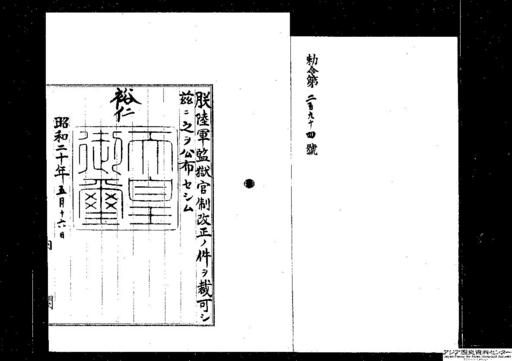 勅令第二百九十四號
朕陸軍監獄官制改正ノ件ヲ裁可シ
茲ニ之ヲ公布セシム
裕仁
天皇
御璽
昭和二十年五月十六日
アジア歴史資料センター